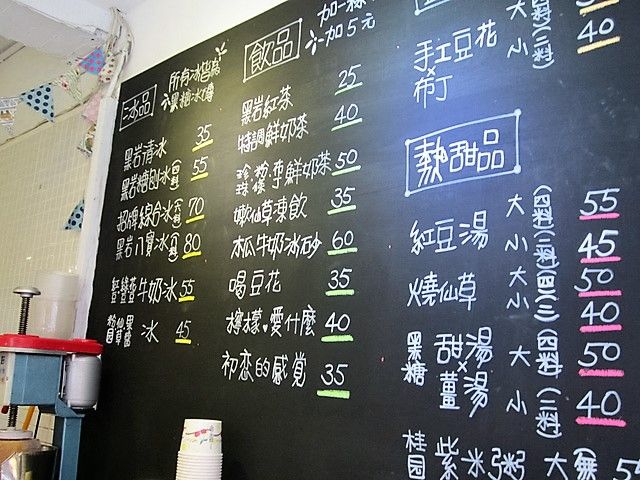 冰品
所有冰皆為
黑糖冰磚
黑岩清冰 35
黑岩糖刨冰(四料) 55
招牌綜合冰(六料) 70
黑岩八寶冰(八料) 80
牛奶冰 55
冰 45
飲品
加一料
加5元
黑岩紅茶 25
特調鮮奶茶 40
珍珠 鮮奶茶 50
嫩仙草凍飲 35
木瓜牛奶冰砂 60
喝豆花 35
檸檬♥愛什麼 40
初恋的感覺 35
大(四料)
手工豆花 小(二料) 40
布丁
熱甜品
紅豆湯 大(四料) 55
小(二料) 45
燒仙草 大(四) 50
小(二) 40
黑糖 甜湯 大(四料) 50
薑湯 小(二料) 40
桂圓紫米粥 大(無